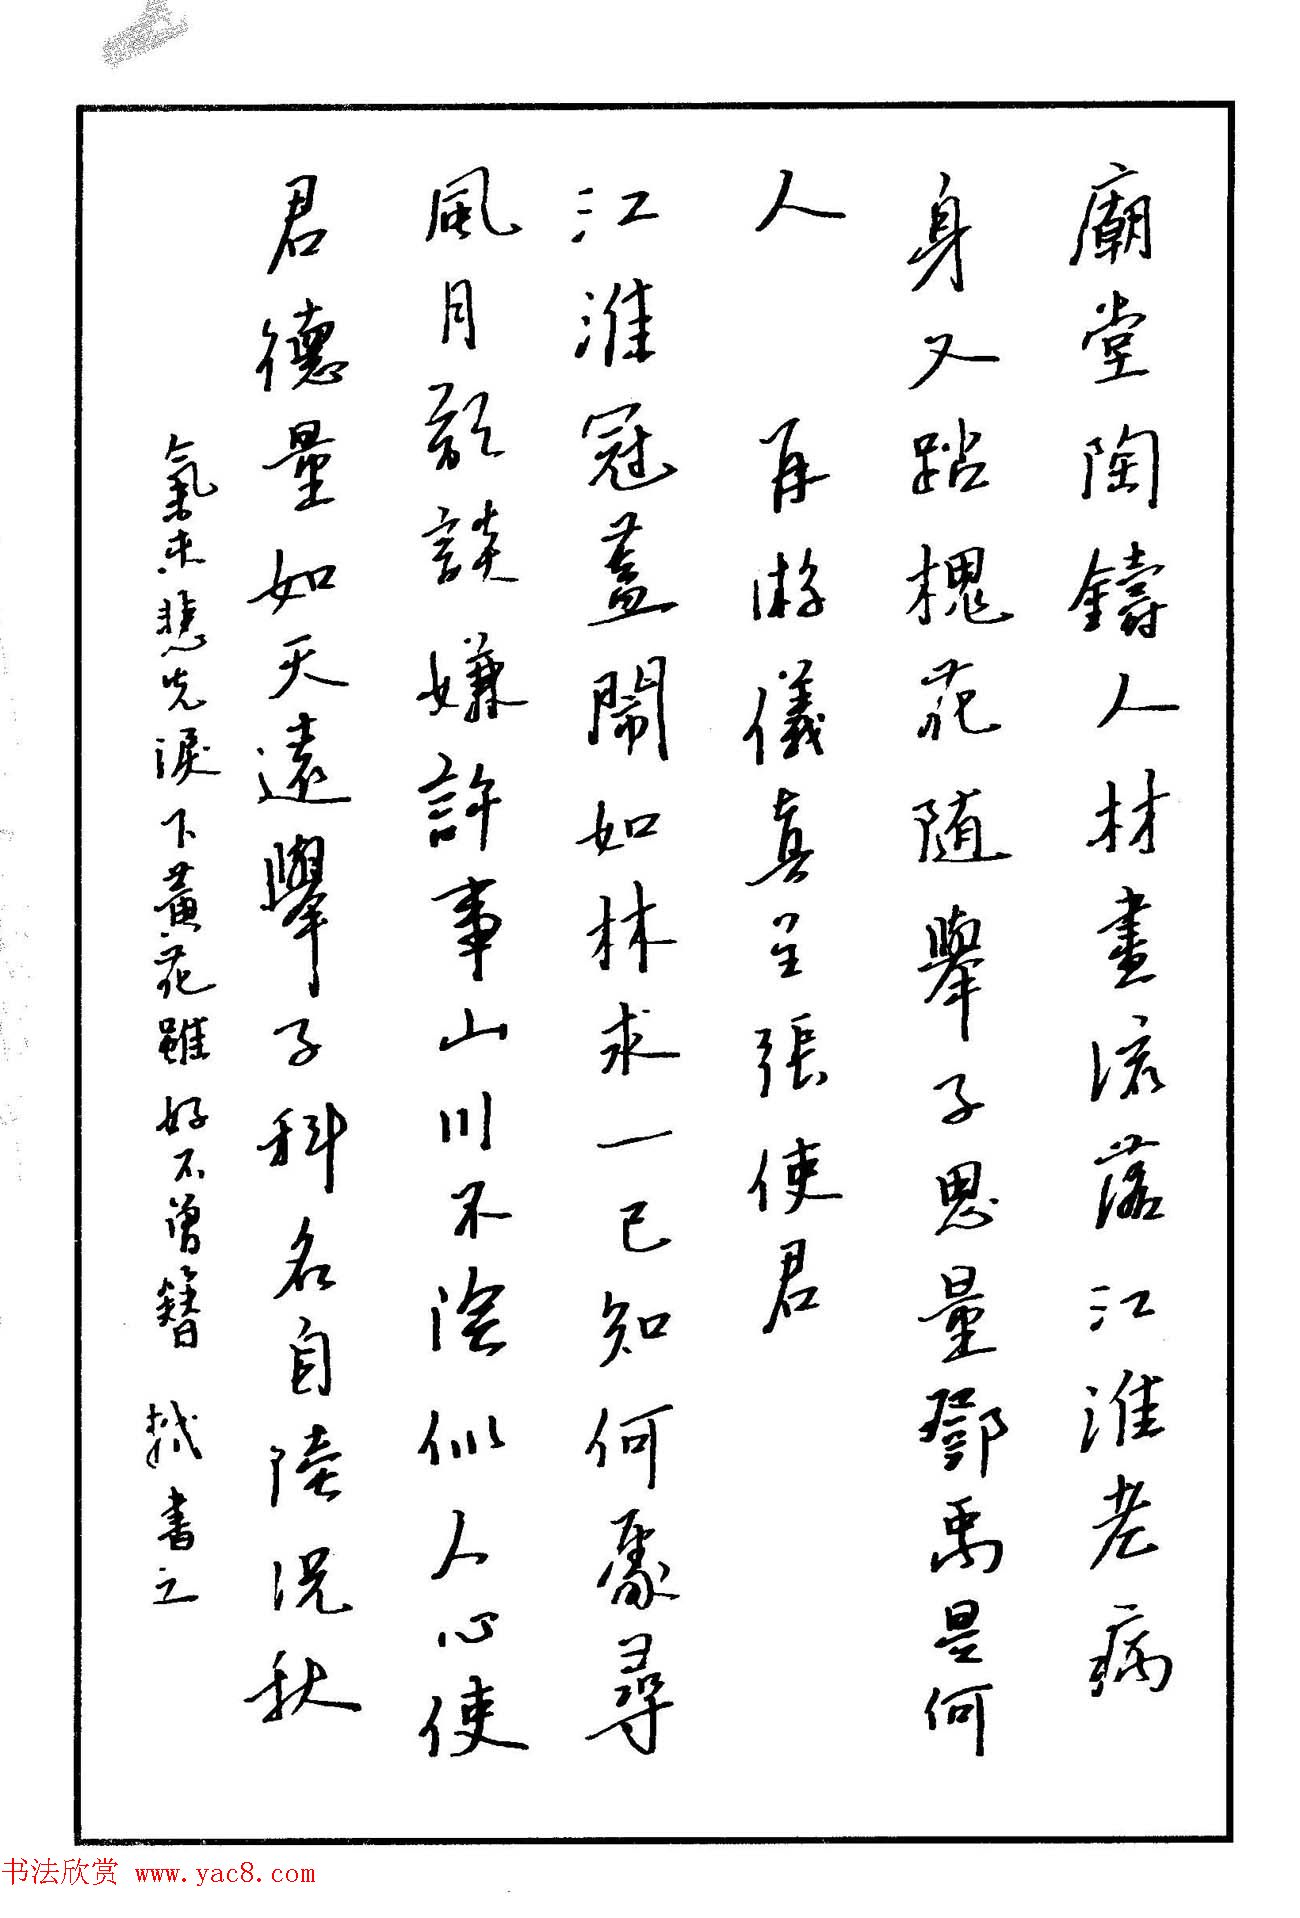 廟堂陶鑄人材盡流落江淮老病
身又踏槐花隨舉子思量鄧禹是何
人　再游儀真呈張使君
江淮冠蓋鬧如林求一已知何處尋
風月歌談嫌許事山川不陰似人心使
君德量如天遠舉子科名自陸沉秋
氣未悲先淚下黃花雖好不曾簪　栻書之
书法欣赏 www.yac8.com